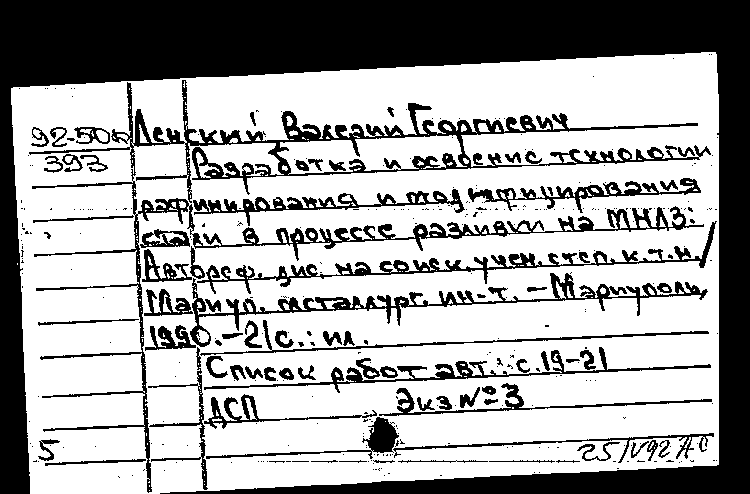 92-50д Ленский Валерий Георгиевич
393 Разработка и освоение технологии
рафинирования и модифицирования
стали в процессе разливки на МНЛЗ:
Автореф. дис. на соиск. учен. степ. к.т.н. /
Мариуп. металлург. ин-т. - Мариуполь,
1990. - 21 с. : ил.
Список работ авт.: с. 19-21
ДСП Экз № 3
5 25/IV92